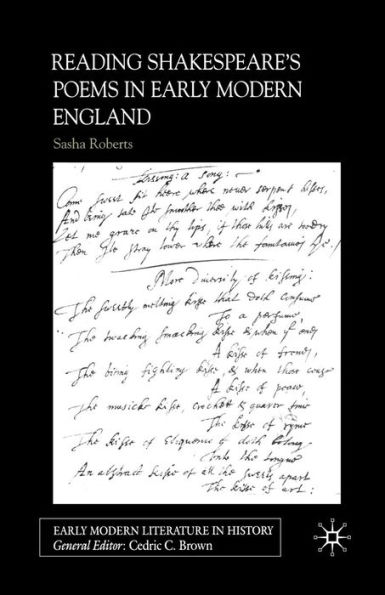 READING SHAKESPEARE'S
POEMS IN EARLY MODERN
ENGLAND
Sasha Roberts
Kissing: a song: —
Come sweet sit heere where never serpent hises,
And being sate Ile smoother thee with kisses,
Let me graze on thy lips, if those hills are
Then Ile stray lower where the fountaines lye /
More Diversity of kissing:
The sweetly melting kisse that doth consume
To a perfume,
The smacking kisse & when
A kisse of
The kisse, & when those
A kisse of peace
The musicke kisse, crochett & quaver time
The kisse of ryme
The kisse of Eloquence doth belong
Unto the tongue
An abstract kisse of all the sweets apart
The kisse of art:
EARLY MODERN LITERATURE IN HISTORY
General Editor: Cedric C. Brown